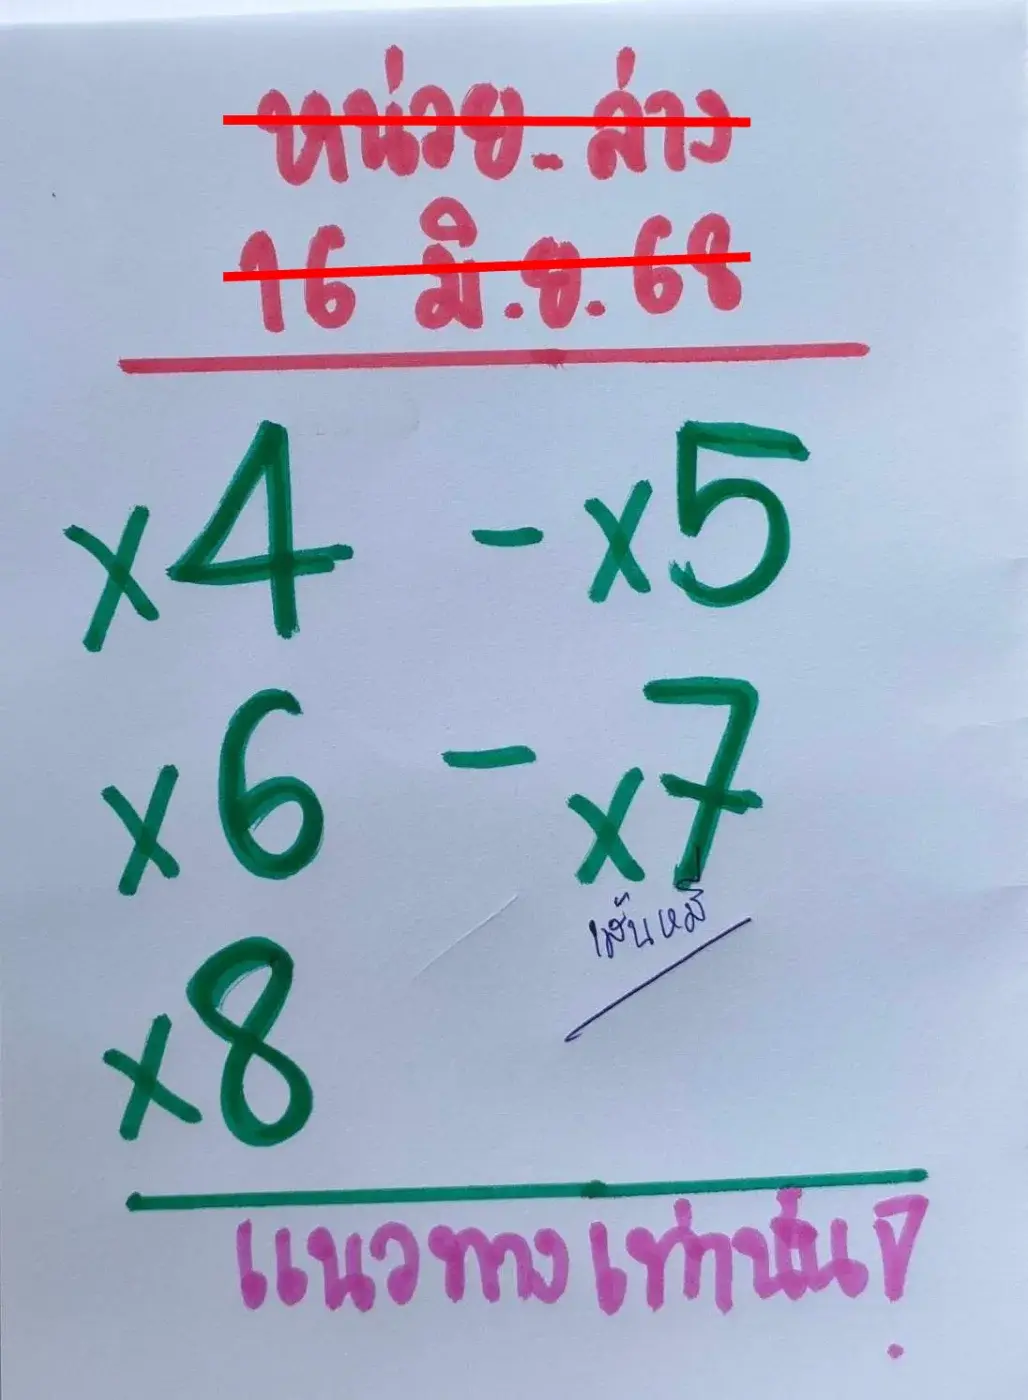 หน่วย - ล่าง
16 มิ.ย. 68
x4 - x5
x6 - x7
เส้นหมี่
x8
แนวทางเท่านั้น!